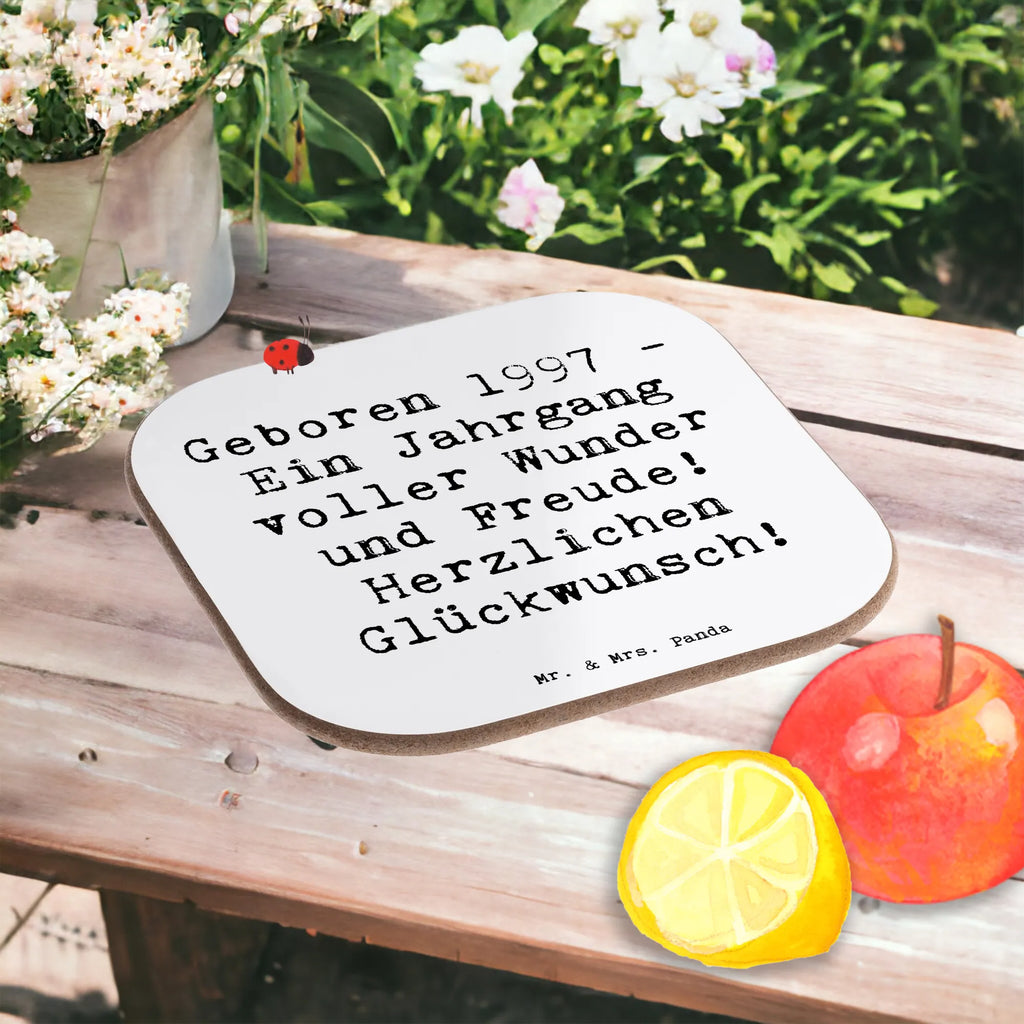 Geboren 1997 -
Ein Jahrgang
voller Wunder
und Freude!
Herzlichen
Glückwunsch!
Mr. & Mrs. Panda